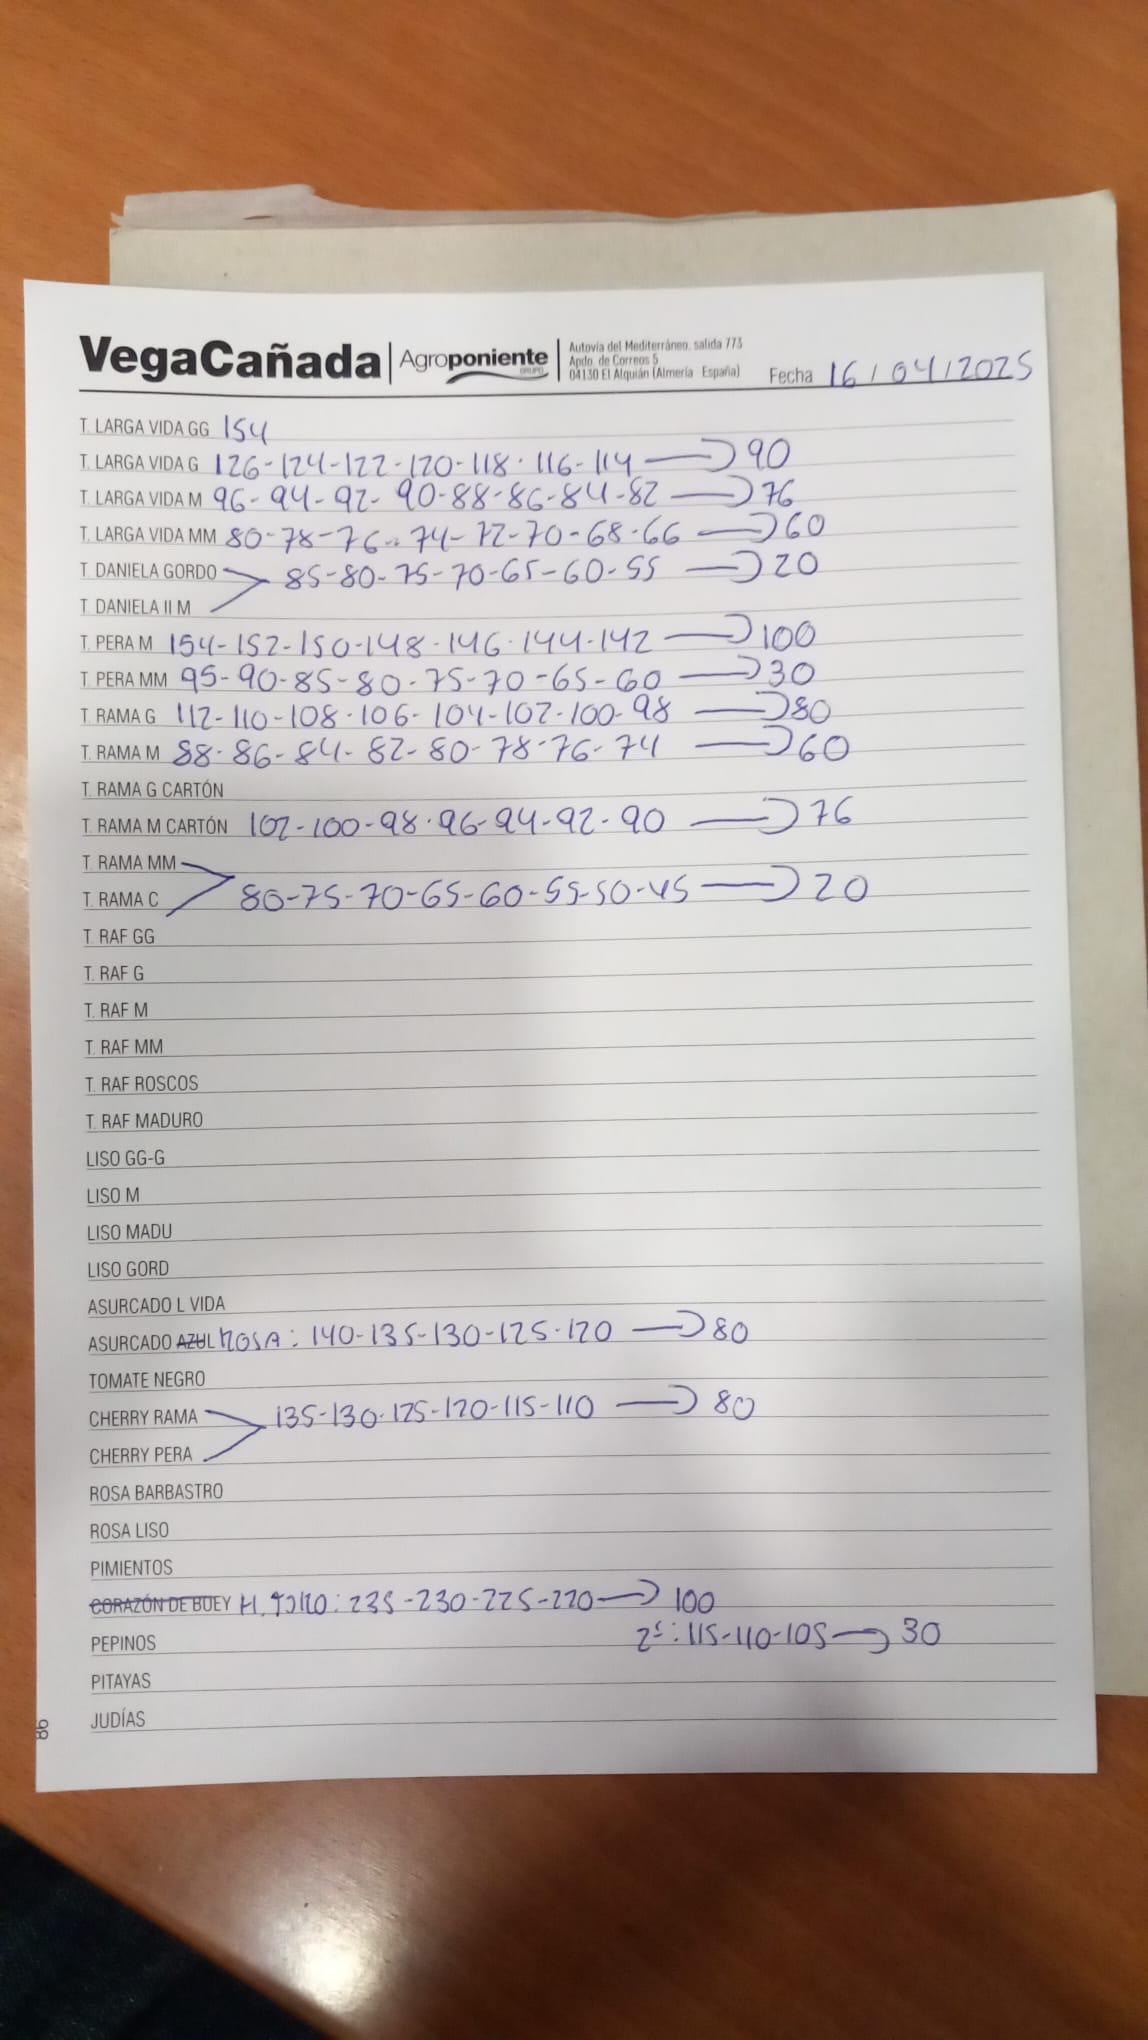 VegaCañada | Agroponiente GRUPO | Autovía del Mediterráneo, salida 773
Apdo. de Correos 5
04130 El Alquián (Almería España)
Fecha 16/04/2025
T. LARGA VIDA GG 154
T. LARGA VIDA G 126-124-122-120-118-116-114 → 90
T. LARGA VIDA M 96-94-92-90-88-86-84-82 → 76
T. LARGA VIDA MM 80-78-76-74-72-70-68-66 → 60
T. DANIELA GORDO 85-80-75-70-65-60-55 → 20
T. DANIELA II M
T. PERA M 154-152-150-148-146-144-142 → 100
T. PERA MM 95-90-85-80-75-70-65-60 → 30
T. RAMA G 112-110-108-106-104-102-100-98 → 80
T. RAMA M 88-86-84-82-80-78-76-74 → 60
T. RAMA G CARTÓN
T. RAMA M CARTÓN 102-100-98-96-94-92-90 → 76
T. RAMA MM
T. RAMA C 80-75-70-65-60-55-50-45 → 20
T. RAF GG
T. RAF G
T. RAF M
T. RAF MM
T. RAF ROSCOS
T. RAF MADURO
LISO GG-G
LISO M
LISO MADU
LISO GORD
ASURCADO L VIDA
ASURCADO AZUL ROSA: 140-135-130-125-120 → 80
TOMATE NEGRO
CHERRY RAMA 135-130-125-120-115-110 → 80
CHERRY PERA
ROSA BARBASTRO
ROSA LISO
PIMIENTOS
CORAZÓN DE BUEY H. TORO: 235-230-225-220 → 100
PEPINOS 2ª: 115-110-105 → 30
PITAYAS
JUDÍAS
86